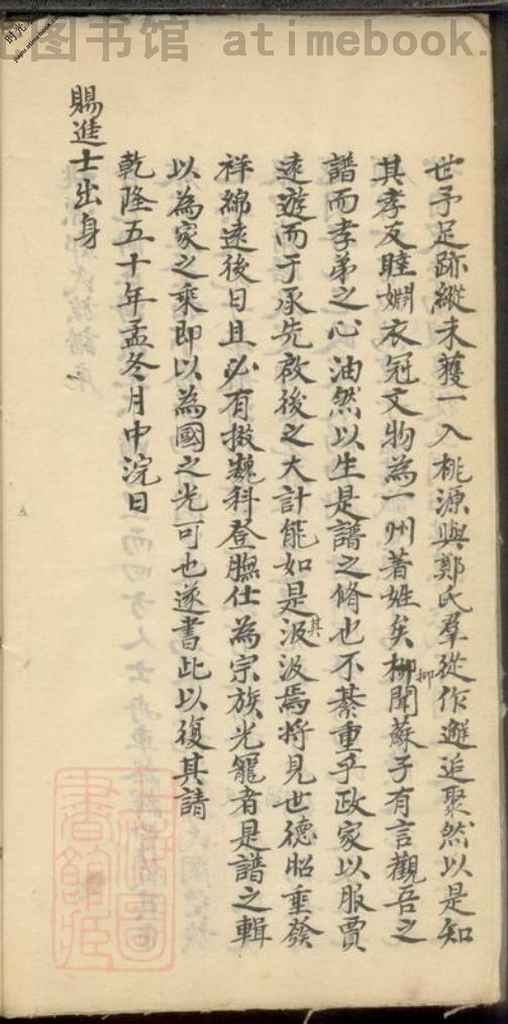 图书馆 atimebook.
世予足跡縱未獲一入桃源與鄭氏羣從作邂逅聚然以是知
其孝友睦婣衣冠文物為一州著姓矣柳聞蘇子有言觀吾之
抑
譜而孝弟之心油然以生是譜之脩也不綦重乎政家以服賈
遠遊而于承先啟後之大計能如是汲汲焉將見世德昭垂發
其
祥綿遠後日且必有掇巍科登膴仕為宗族光寵者是譜之輯
以為家之乘即以為國之光可也遂書此以復其請
乾隆五十年孟冬月中浣日
賜進士出身